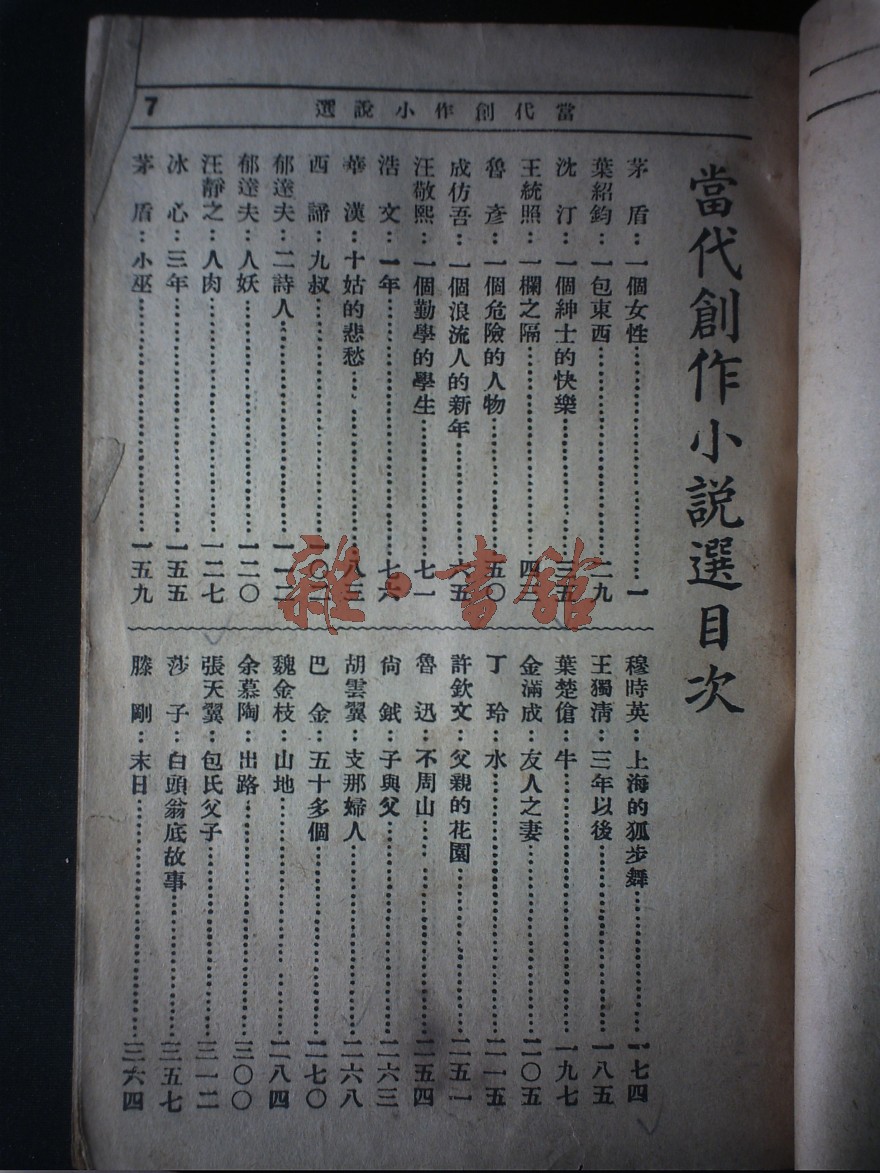 當代創作小說選
7
當代創作小說選目次
茅盾：一個女性…………一
葉紹鈞：一包東西…………二九
沈汀：一個紳士的快樂…………三五
王統照：一欄之隔…………四三
魯彥：一個危險的人物…………五〇
成仿吾：一個浪流人的新年…………六五
汪敬熙：一個勤學的學生…………七一
浩文：一年…………七六
華漢：十姑的悲愁…………八三
西諦：九叔…………一〇二
郁達夫：二詩人…………一一二
郁達夫：人妖…………一二〇
汪靜之：人肉…………一二七
冰心：三年…………一五五
茅盾：小巫…………一五九
穆時英：上海的狐步舞…………一七四
王獨淸：三年以後…………一八五
葉楚傖：牛…………一九七
金滿成：友人之妻…………二〇五
丁玲：水…………二一五
許欽文：父親的花園…………二五一
魯迅：不周山…………二五四
尙鉞：子與父…………二六三
胡雲翼：支那婦人…………二六八
巴金：五十多個…………二七〇
魏金枝：山地…………二八四
余慕陶：出路…………三〇〇
張天翼：包氏父子…………三一二
莎子：白頭翁底故事…………三五七
滕剛：末日…………三六四
雜·書館